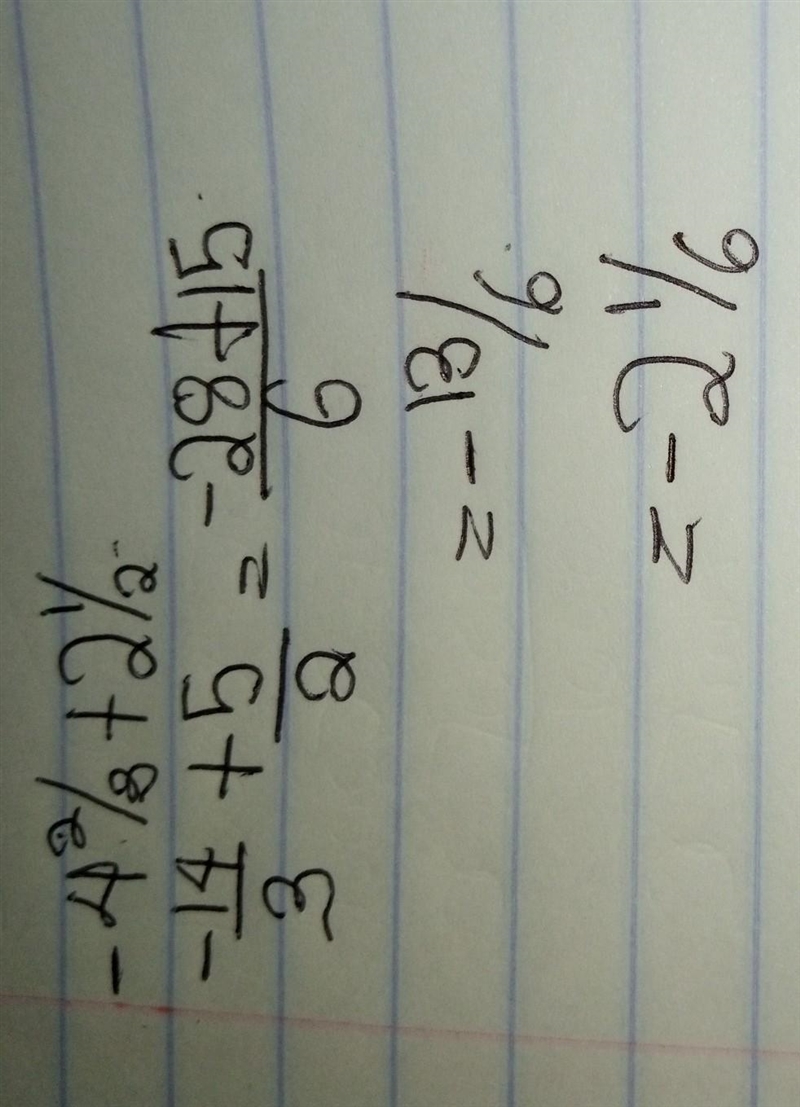 -4 2/3 + 2 1/2
-14/3 + 5/2 = -28+15/6
= -13/6
= -2 1/6